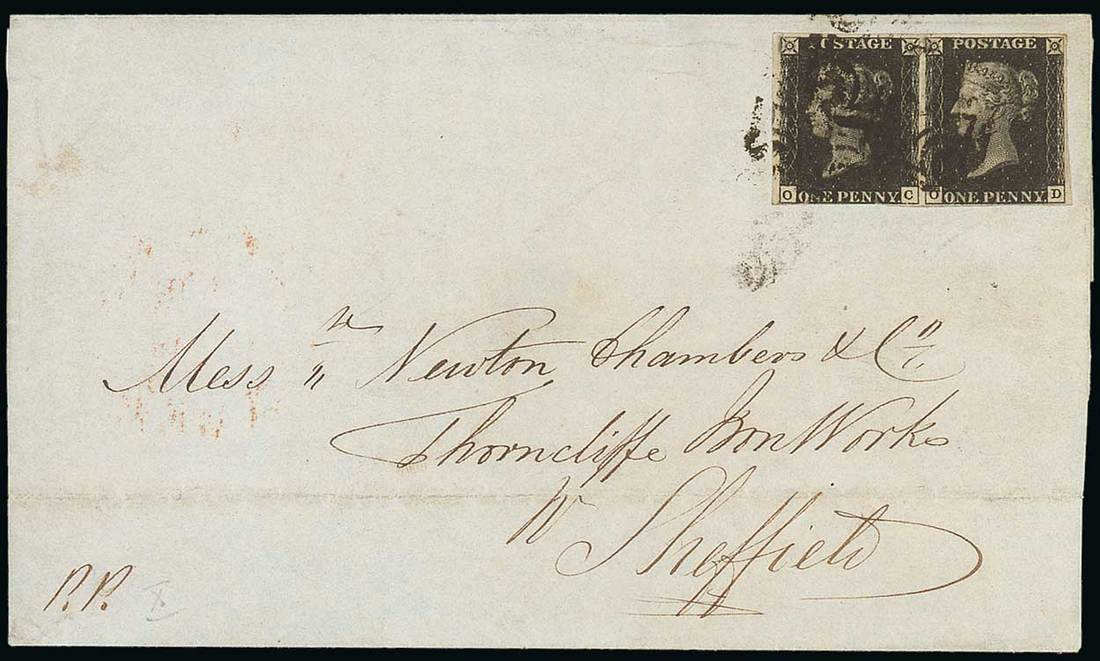 POSTAGE POSTAGE
ONE PENNY ONE PENNY
O C O D
Mess rs Newton Chambers & Co
Thorncliffe Iron Works
Nr Sheffield
P.P.